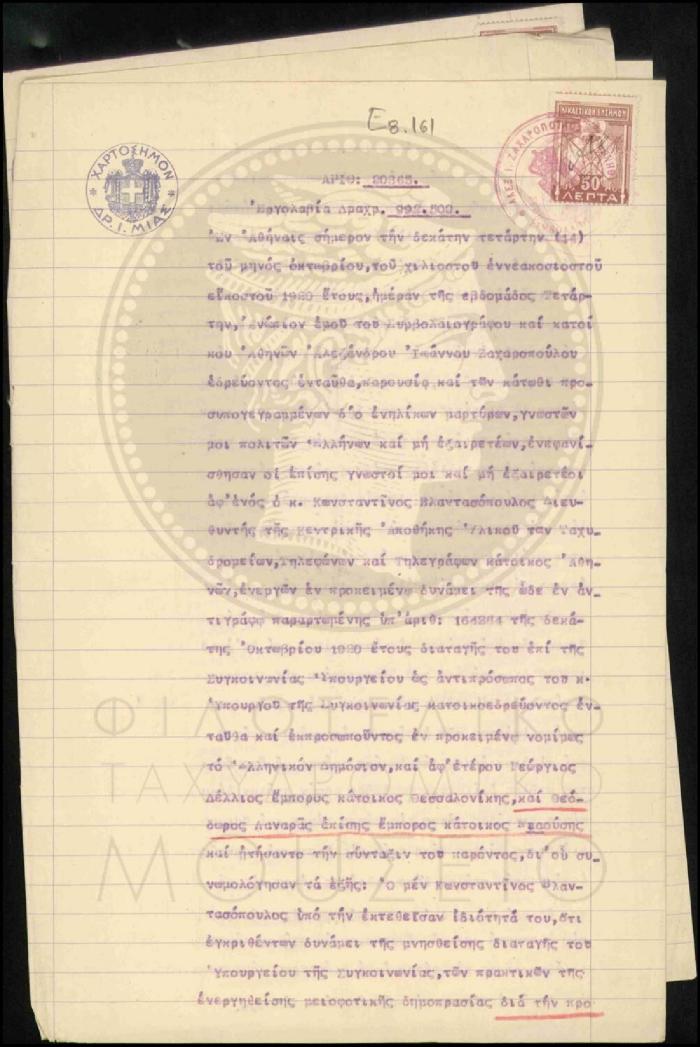 Ε8.161
ΧΑΡΤΟΣΗΜΟΝ
ΔΡ. Ι. ΜΙΑΣ
ΔΙΚΑΣΤΙΚΟΝ ΕΝΣΗΜΟΝ
50
ΛΕΠΤΑ
ΑΡΙΘ: 20365.
Ἐργολαβία Δραχ. 992.500.
Ἐν Ἀθήναις σήμερον τήν δεκάτην τετάρτην (14)
τοῦ μηνός Ὀκτωβρίου, τοῦ χιλιοστοῦ ἐννεακοσιοστοῦ
εἰκοστοῦ 1920 ἔτους, ἡμέραν τῆς ἑβδομάδος Τετάρ-
την, ἐνώπιον ἐμοῦ τοῦ Συμβολαιογράφου καί κατοί
κου Ἀθηνῶν Ἀλεξάνδρου Ἰωάννου Ζαχαροπούλου
ἑδρεύοντος ἐνταῦθα, παρουσίᾳ καί τῶν κάτωθι προ-
συπογεγραμμένων δύο ἐνηλίκων μαρτύρων, γνωστῶν
μοι πολιτῶν Ἑλλήνων καί μή ἐξαιρετέων, ἐνεφανί-
σθησαν οἱ ἐπίσης γνωστοί μοι καί μή ἐξαιρετέοι
ἀφ' ἑνός ὁ κ. Κωνσταντῖνος Βλαντασόπουλος Διευ-
θυντής τῆς Κεντρικῆς Ἀποθήκης Ὑλικοῦ τῶν Ταχυ-
δρομείων, Τηλεφώνων καί Τηλεγράφων κάτοικος Ἀθη-
νῶν, ἐνεργῶν ἐν προκειμένῳ δυνάμει τῆς ὧδε ἐν ἀν-
τιγράφῳ παραρτωμένης ὑπ' ἀριθ: 164264 τῆς δεκά-
της Ὀκτωβρίου 1920 ἔτους διαταγῆς τοῦ ἐπί τῆς
Συγκοινωνίας Ὑπουργείου ὡς ἀντιπρόσωπος τοῦ κ.
Ὑπουργοῦ τῆς Συγκοινωνίας κατοικοεδρεύοντος ἐν-
ταῦθα καί ἐκπροσωποῦντος ἐν προκειμένῳ νομίμως
τό Ἑλληνικόν Δημόσιον, καί ἀφ' ἑτέρου Γεώργιος
Δέλλιος ἔμπορος κάτοικος Θεσσαλονίκης, καί Θεό-
δωρος Λαναρᾶς ἐπίσης ἔμπορος κάτοικος Ναούσης
καί ᾐτήσαντο τήν σύνταξιν τοῦ παρόντος, δι' οὗ συ-
νωμολόγησαν τά ἑξῆς: Ὁ μέν Κωνσταντῖνος Βλαν-
τασόπουλος ὑπό τήν ἐκτεθεῖσαν ἰδιότητά του, ὅτι
ἐγκριθέντων δυνάμει τῆς μνησθείσης διαταγῆς τοῦ
Ὑπουργείου τῆς Συγκοινωνίας, τῶν πρακτικῶν τῆς
ἐνεργηθείσης μειοδοτικῆς δημοπρασίας διά τήν προ
ΦΙΛΟΤΕΛΙΚΟ
ΤΑΧΥΔΡΟΜΙΚΟ
ΜΟΥΣΕΙΟ